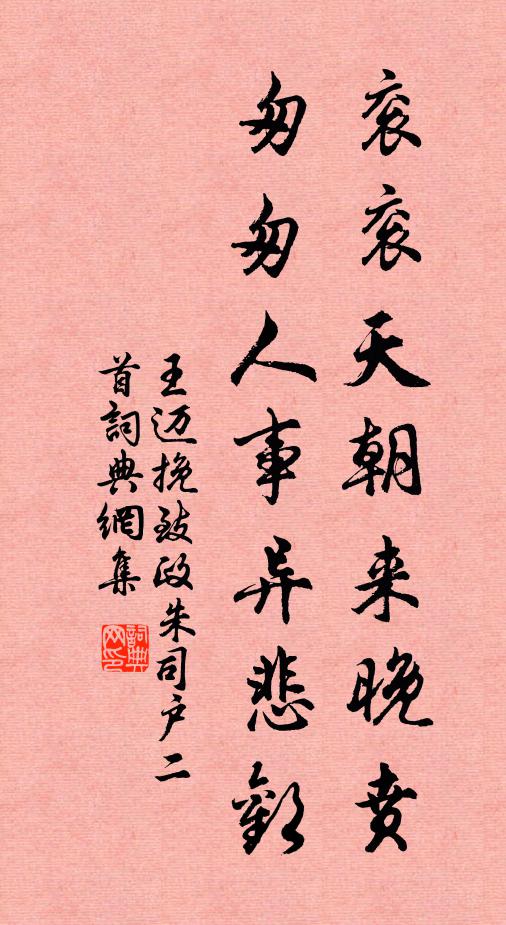 衮衮天朝来晚贲
匆匆人事异悲歡
王迈挽致政朱司户二
首詞典網集
詞典
网印